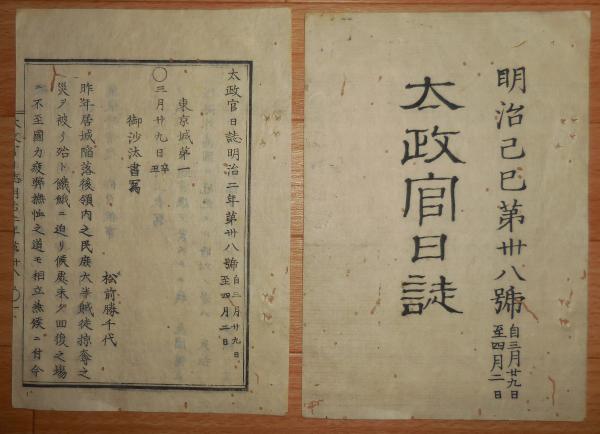 明治己巳第卅八號 自三月廿九日 至四月二日
太政官日誌
太政官日誌明治二年第卅八號 自三月廿九日 至四月二日
東京城第一
〇三月廿九日辛丑
御沙汰書寫
松前勝千代
昨年居城陷落後領内之民庶大半賊徒掠奪之
災ヲ被リ殆ト饑餓ニ迫リ候處未タ回復之場
ニ不至國力疲弊撫恤之道モ相立兼候ニ付今